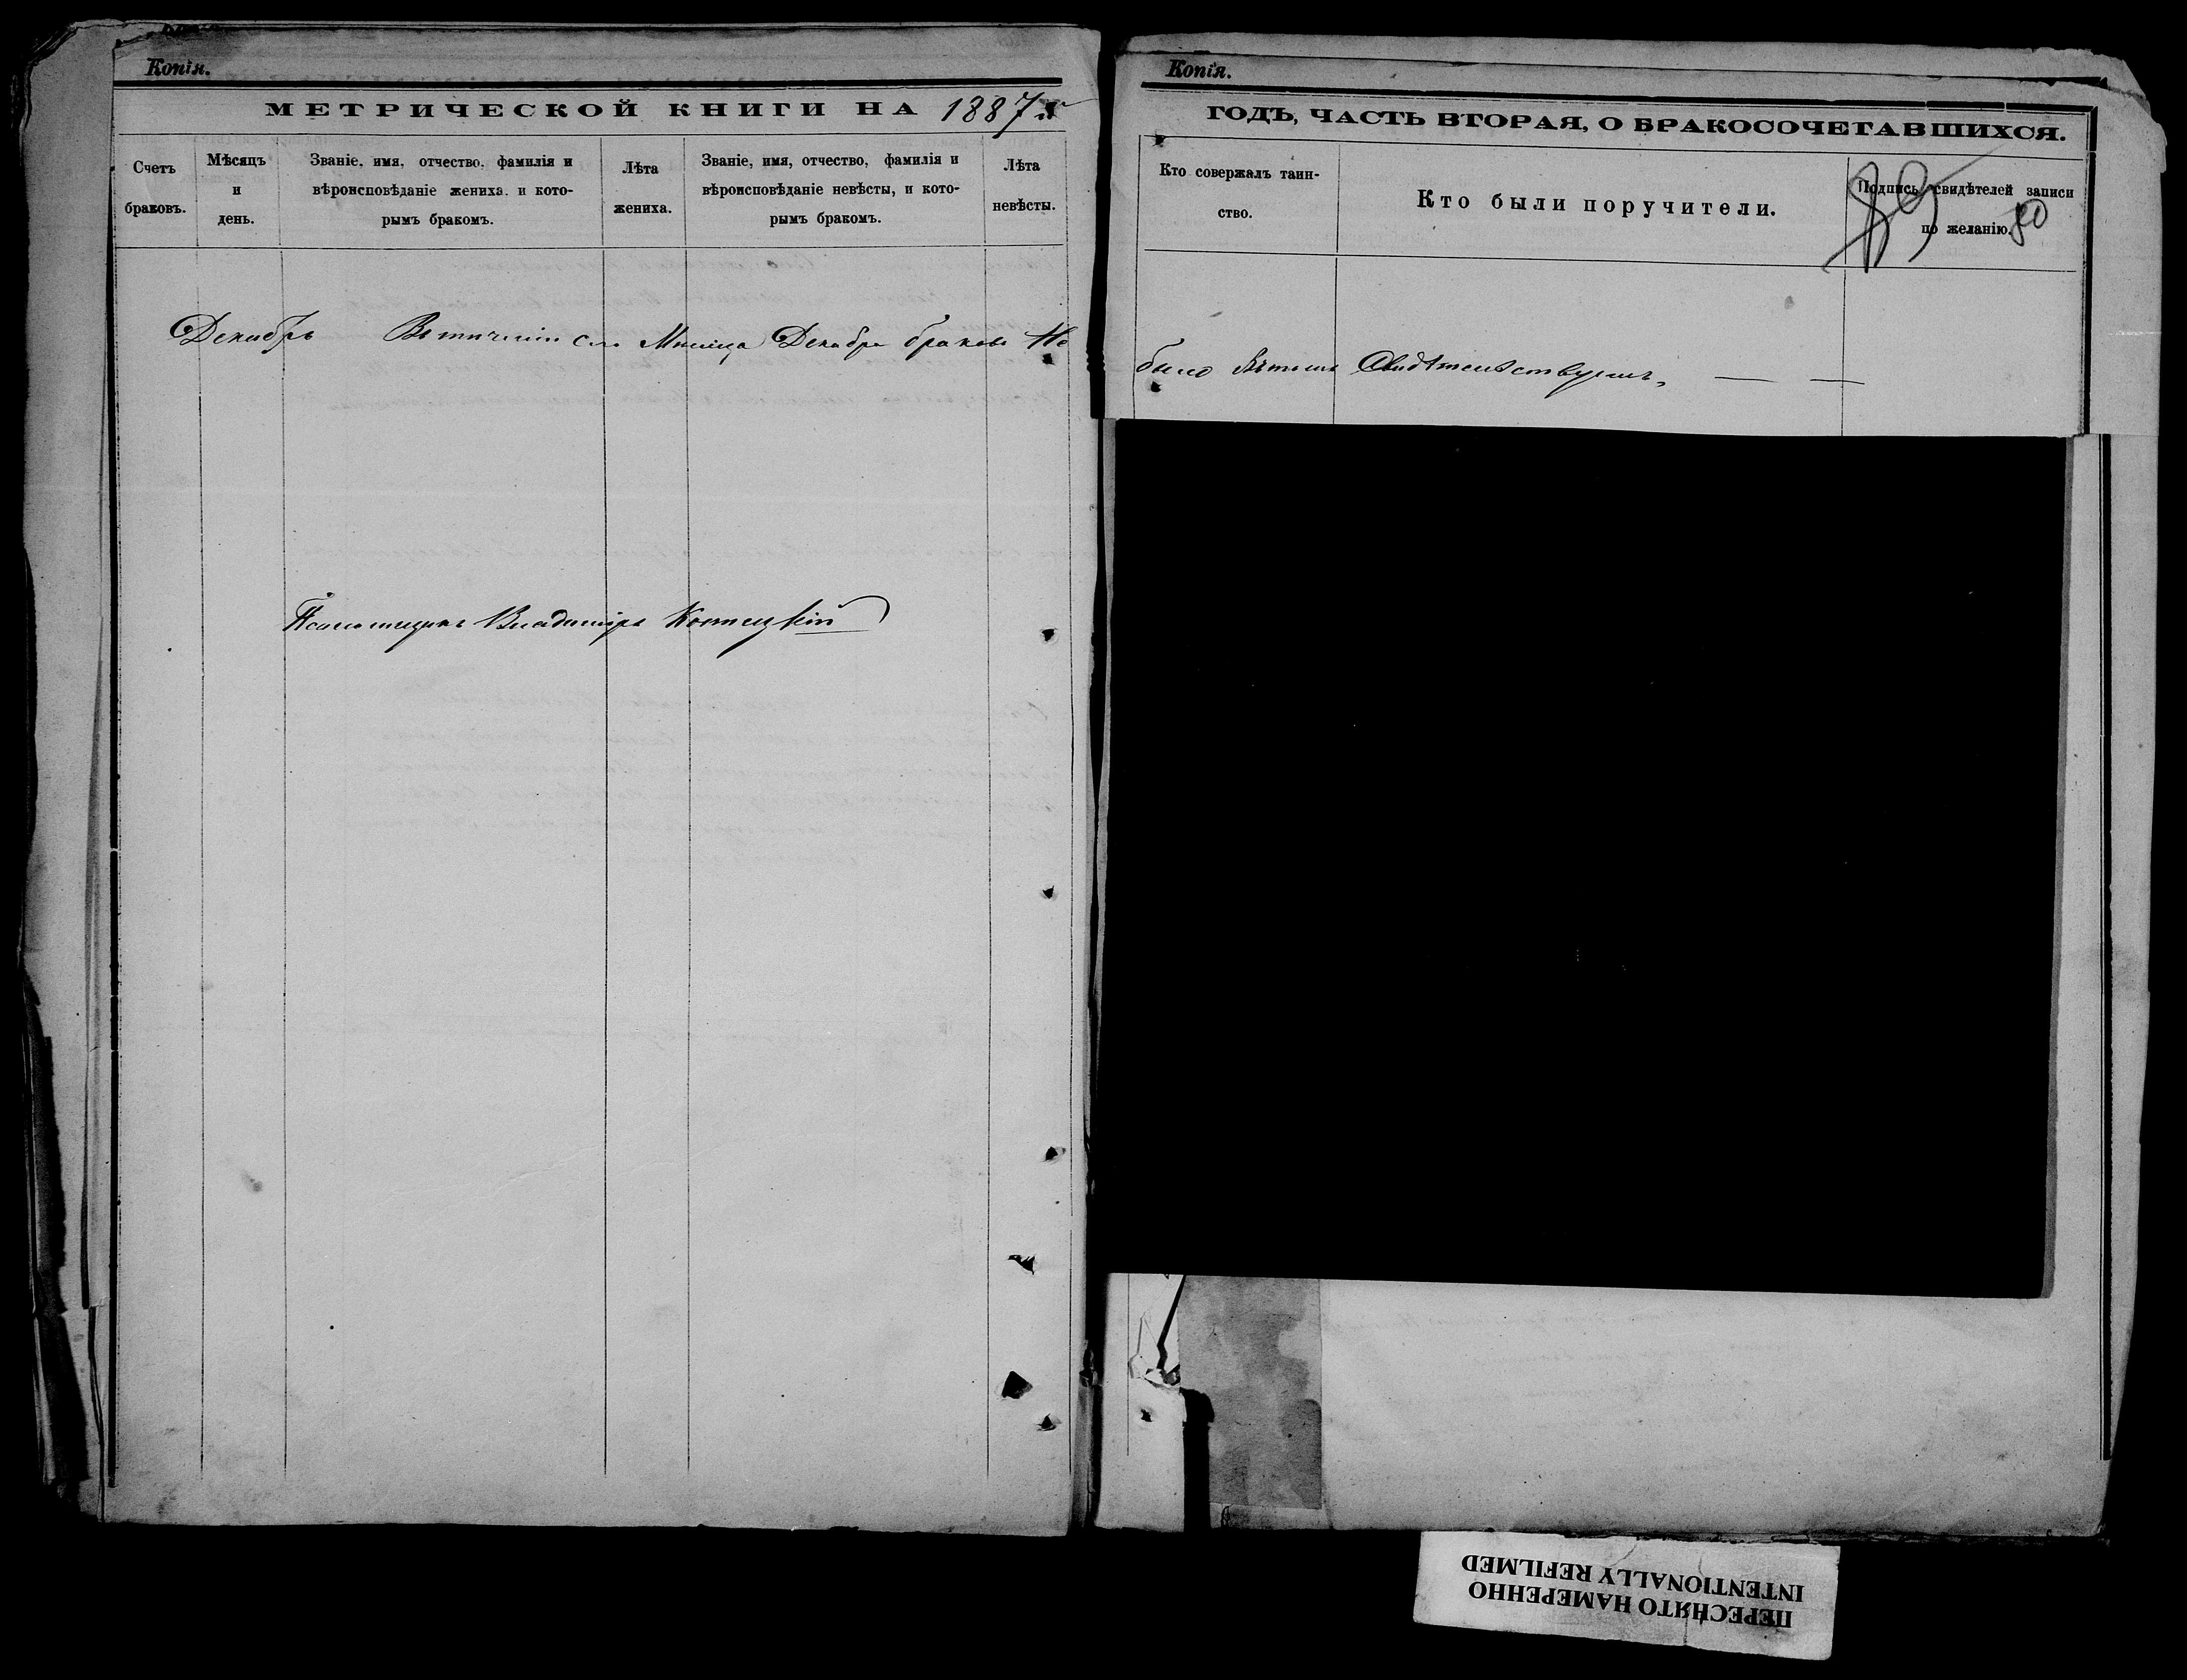 Копія.
МЕТРИЧЕСКОЙ КНИГИ НА 1887 г
Счетъ браковъ.
Мѣсяцъ и день.
Званіе, имя, отчество, фамилія и вѣроисповѣданіе жениха, и кото-
рымъ бракомъ.
Лѣта жениха.
Званіе, имя, отчество, фамилія и вѣроисповѣданіе невѣсты, и кото-
рымъ бракомъ.
Лѣта невѣсты.
Декабрь Въ теченіи сего Мѣсяца Декабря браковъ Не
Псаломщикъ Владиміръ
Копія.
ГОДЪ, ЧАСТЬ ВТОРАЯ, О БРАКОСОЧЕТАВШИХСЯ.
Кто совержалъ таин-
ство.
Кто были поручители.
Подпись свидѣтелей записи
по желанію.
89
80
было Въ томъ Свидѣтельствуемъ
ПЕРЕСНЯТО НАМЕРЕННО
INTENTIONALLY REFILMED